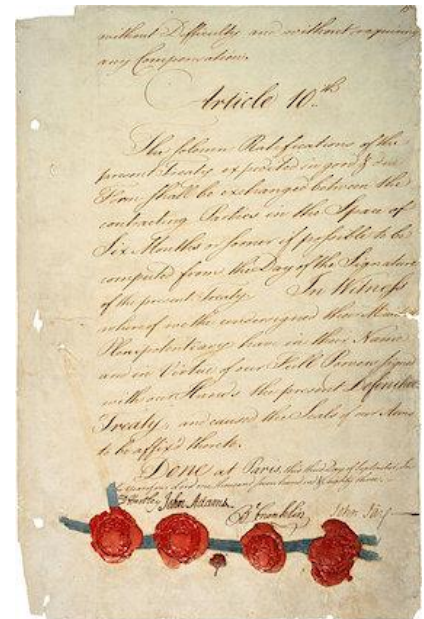 without Difficulty and without requiring
any Compensation.
Article 10.th
The solemn Ratifications of the
present Treaty expedited in good & due
Form shall be exchanged between the
contracting Parties in the Space of
Six Months or sooner if possible to be
computed from the Day of the Signature
of the present Treaty. In Witness
whereof we the undersigned their Ministers
Plenipotentiary have in their Name
and in Virtue of our Full Powers signed
with our Hands the present Definitive
Treaty, and caused the Seals of our Arms
to be affix'd thereto.
Done at Paris, this third Day of September, In
the year of our Lord one thousand seven hundred & eighty three.
D Hartley John Adams B Franklin John Jay